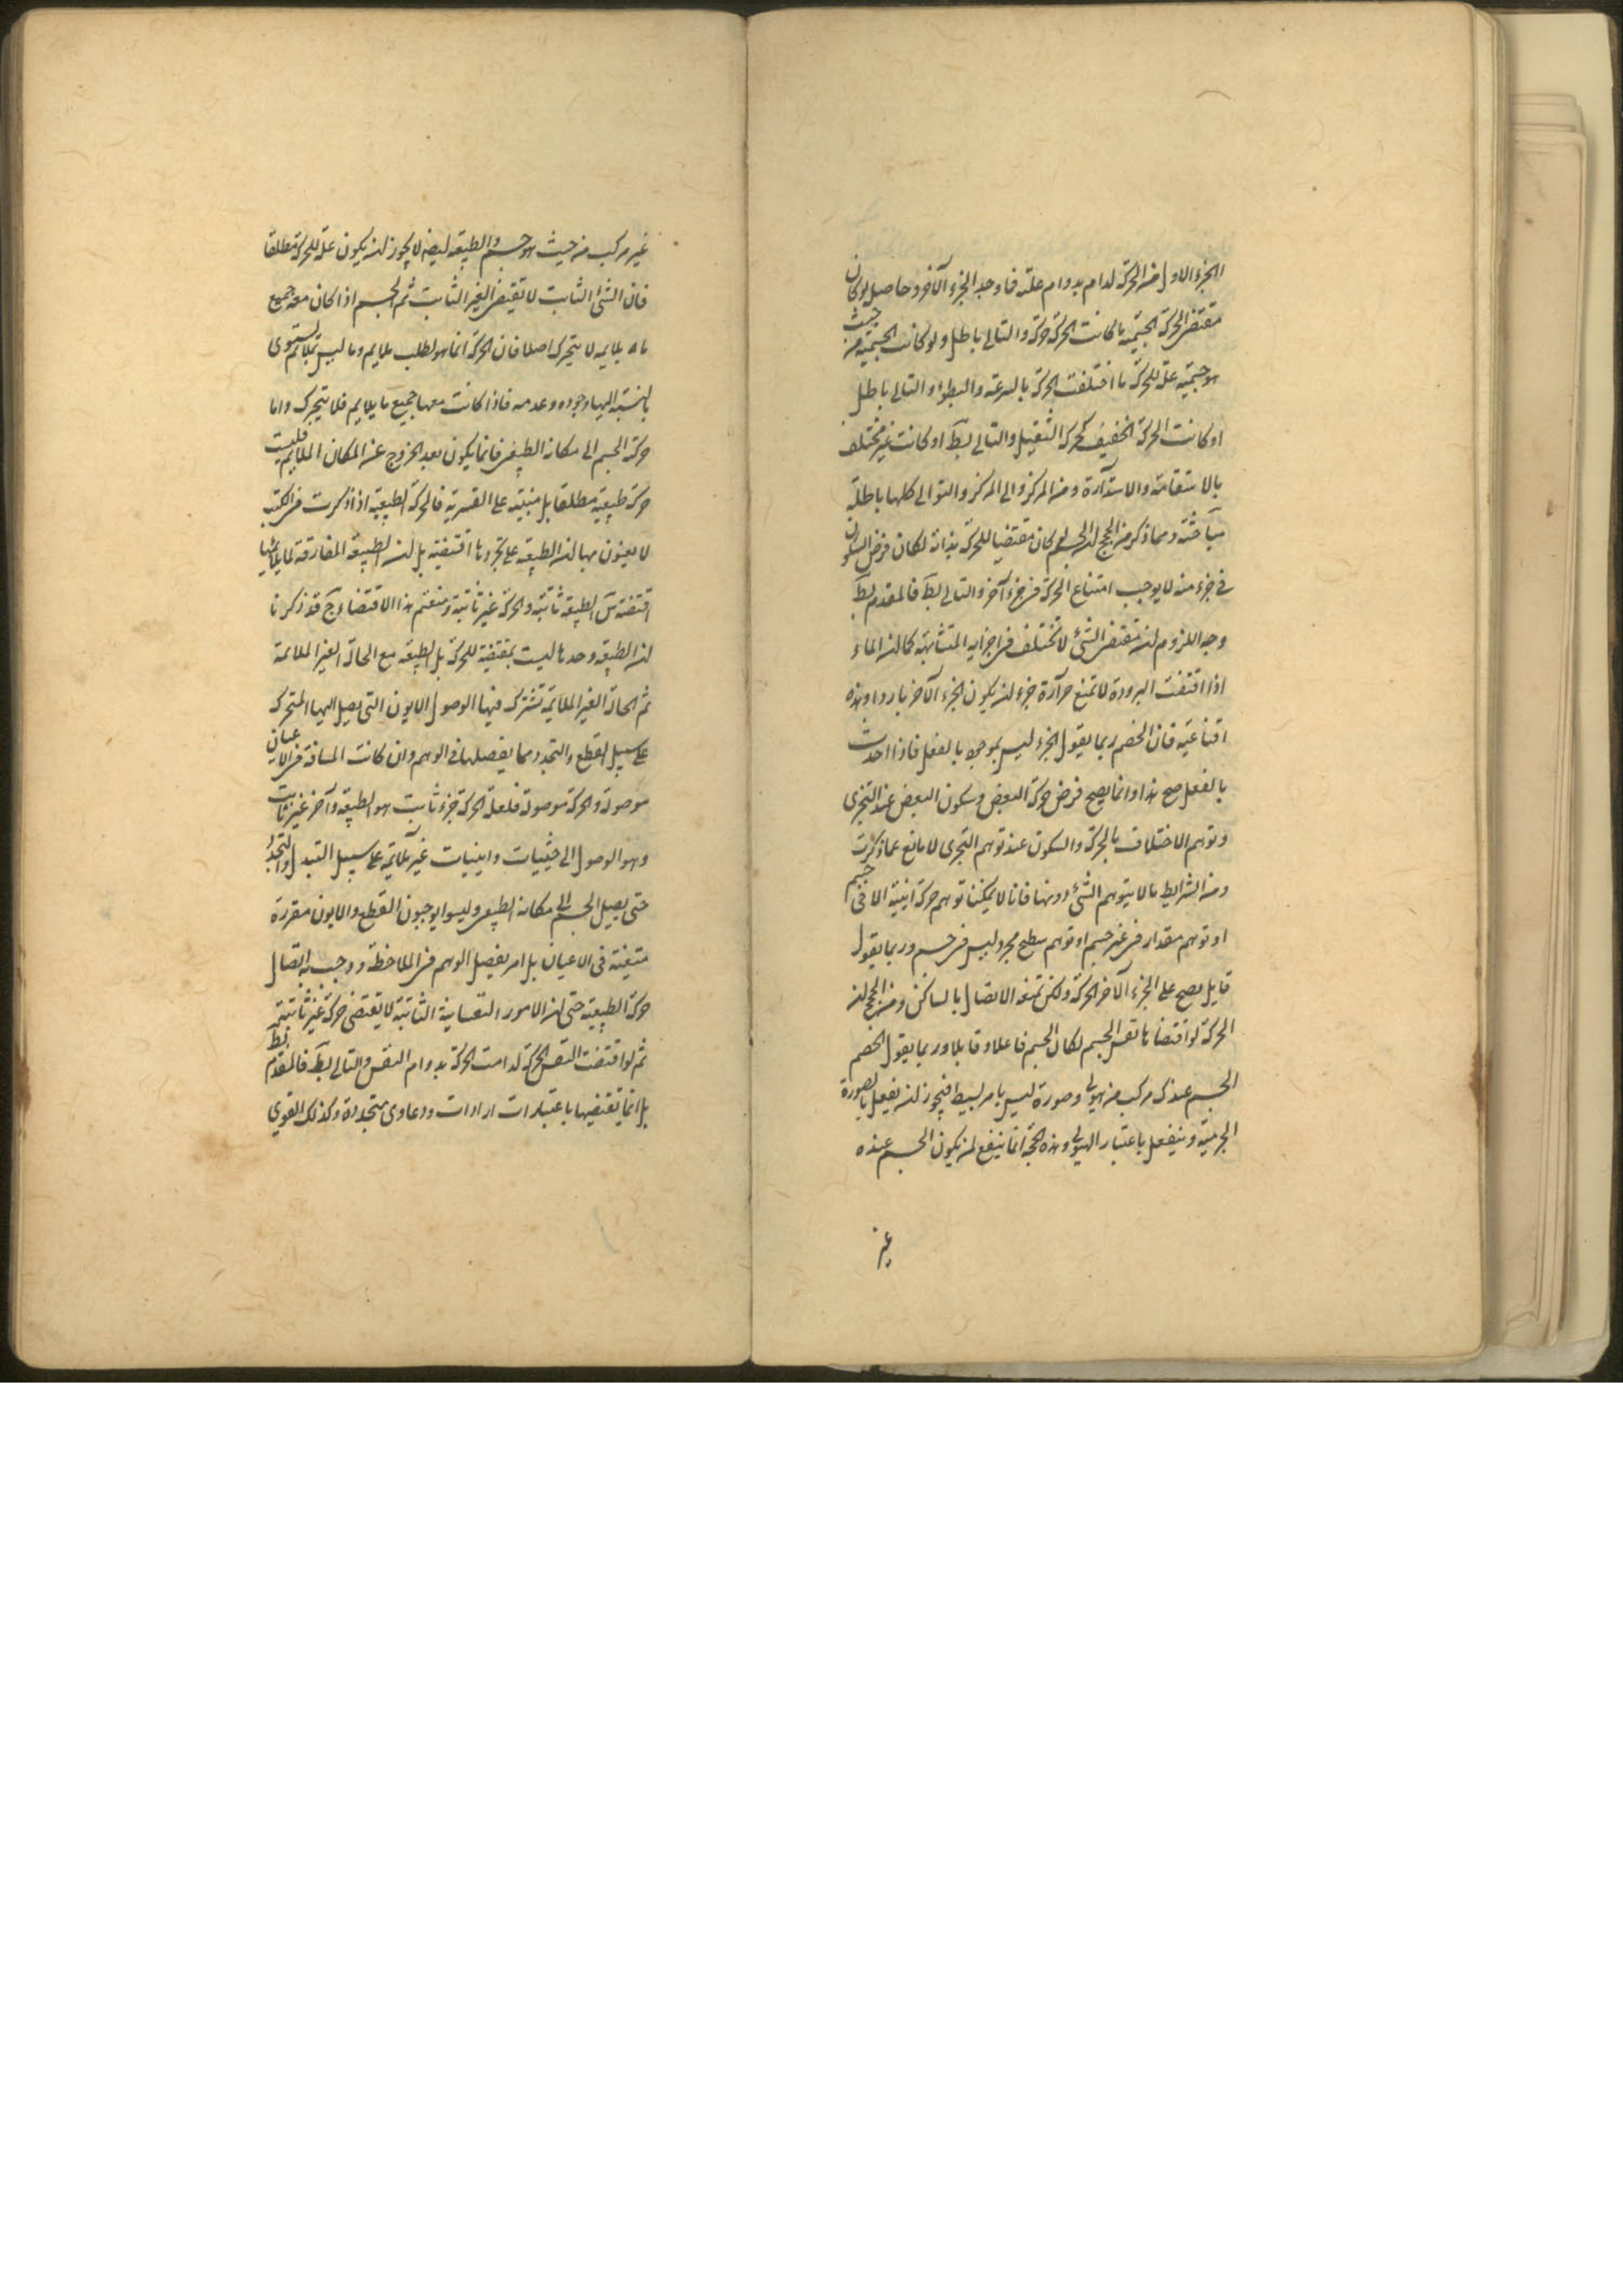 الجزء الاول من الحركة لدام بدوام علته فما وجد الجزء الآخر وحاصل لو كان
مقتضى الحركة الجسمية ما كانت الحركة حركة والتالى باطل ولو كانت الجسمية من حيث
هو جسمية علة للحركة ما اختلفت الحركة بالسرعة والبطوء والتالى باطل
او كانت الحركة الخفيف كحركة الثقيل والتالى بط او كانت غير مختلف
بالاستقامة والاستدارة ومن المركز والى المركز والتوالى كلها باطلة
ومما ذكر من الحجج ان الجسم لو كان مقتضيا للحركة بذاته لكان فرض السكون
فى جزء منه لا يوجب امتناع الحركة فى جزء آخر والتالى بط فالمقدم بط
وجه اللزوم ان مقتضى الشئ لا تختلف فى اجزايه المتشابهة كما ان الماء
اذا اقتضت البرودة لا تمنع حرارة جزء ان يكون الجزء الآخر باردا وهذه
اقناعية فان الخصم ربما يقول الجزء ليس بموجود بالفعل فاذا احدث
بالفعل صح هذا وانما يصح فرض حركة البعض وسكون البعض عند التجزى
وتوهم الاختلاف بالحركة والسكون عند توهم التجزى لا مانع عما ذكرت
ومن الشرايط ما لا يتوهم الشئ دونها فانا لا يمكننا توهم حركة اينية الا فى جسم
او توهم مقدار فى غير جسم او توهم سطح مجرد ليس فى جسم وربما يقول
قايل يصح على الجزء الآخر الحركة ولكن تمنعه الاتصال بالساكن ومن الحجج ان
الحركة لو اقتضاها نفس الجسم لكان الجسم فاعلا وقابلا وربما يقول الخصم
الجسم عندك مركب من هيولى وصورة ليس بامر بسيط فيجوز ان يفعل بالصورة
الجرمية وينفعل باعتبار الهيولى وهذه الحجة انما ينفع لمن يكون الجسم عنده
غير
غير مركب من حيث هو جسم والطبيعة ايضا لا يجوز ان يكون علة للحركة مطلقا
فان الشئ الثابت لا تقتضى الغير الثابت ثم الجسم اذا كان معه جميع
ما يلايمه لا يتحرك اصلا فان الحركة انما هو لطلب ملايم وما ليس بملائم يستوى
بالنسبة اليها وجوده وعدمه فاذا كانت معها جميع ما يلايم فلا يتحرك واما
حركة الجسم الى مكانه الطبيعى فانما يكون بعد الخروج عن المكان الملايم فليست
حركة طبيعية مطلقا بل مبنية على القسرية فالحركة الطبيعية اذا ذكرت فى الكتب
لا يعنون بها ان الطبيعة على تجردها اقتضته بل ان الطبيعة المفارقة لما يلائمها
اقتضته الطبيعة ثابتة والحركة غير ثابتة فيمتنع هذا الاقتضاء قد ذكرنا
ان الطبيعة وحدها ليست بمقتضية للحركة بل الطبيعة مع الحالة الغير الملائمة
ثم الحالة الغير الملايمة تشترك فيها الوصول الايون التى يصل اليها المتحرك
على سبيل القطع والتجدد مما يفصلها فى الوهم وان كانت المسافة فى الاعيان
موصولة والحركة موصولة فلعلة الحركة جزء ثابت هو الطبيعة وآخر غير ثابت
وهو الوصول الى حيثيات واينيات غير ملايمة على سبيل التبدل والتجدد
حتى يصل الجسم الى مكانه الطبيعى وليسوا يوجبون القطع والايون مقررة
متعينة فى الاعيان بل امر يفصل الوهم فى الملاحظة ووجب به اتصال
حركة الطبيعية حتى ان الامور النفسانية الثابتة لا يقتضى حركة غير ثابتة
ثم لو اقتضت النفس الحركة لدامت الحركة بدوام النفس والتالى بط فالمقدم بط
بل انما يقتضيها باعتبارات ارادات ودعاوى متجددة وكذلك القوى